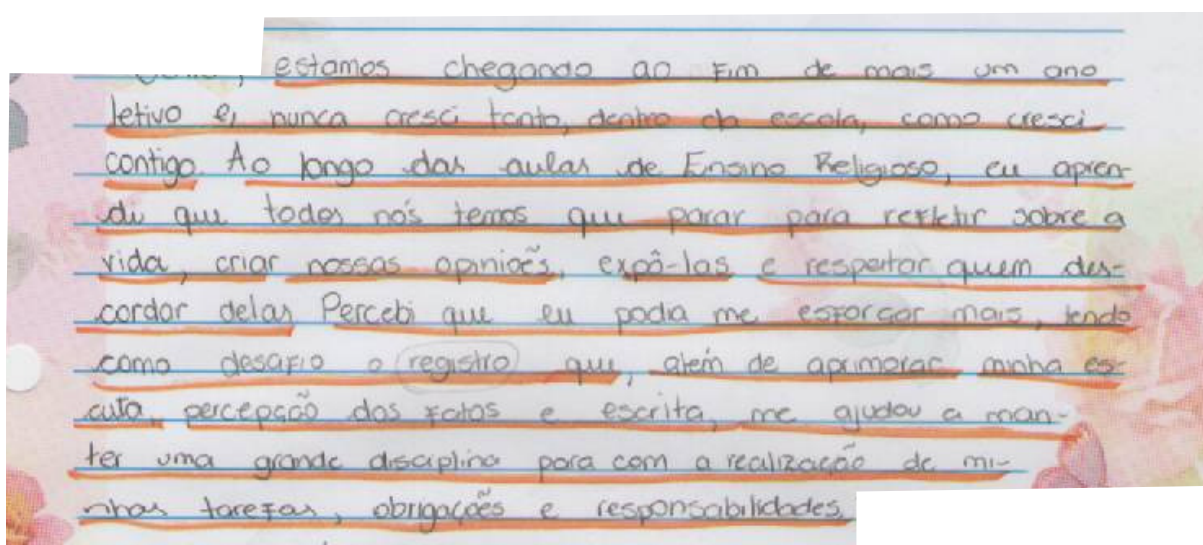 estamos chegando ao fim de mais um ano
letivo e, nunca cresci tanto, dentro da escola, como cresci
contigo. Ao longo das aulas de Ensino Religioso, eu apren-
di que todos nós temos que parar para refletir sobre a
vida, criar nossas opiniões, expô-las e respeitar quem des-
cordar delas. Percebi que eu podia me esforçar mais, tendo
como desafio o registro que, além de aprimorar minha es-
cuta, percepção dos fatos e escrita, me ajudou a man-
ter uma grande disciplina para com a realização de mi-
nhas tarefas, obrigações e responsabilidades.